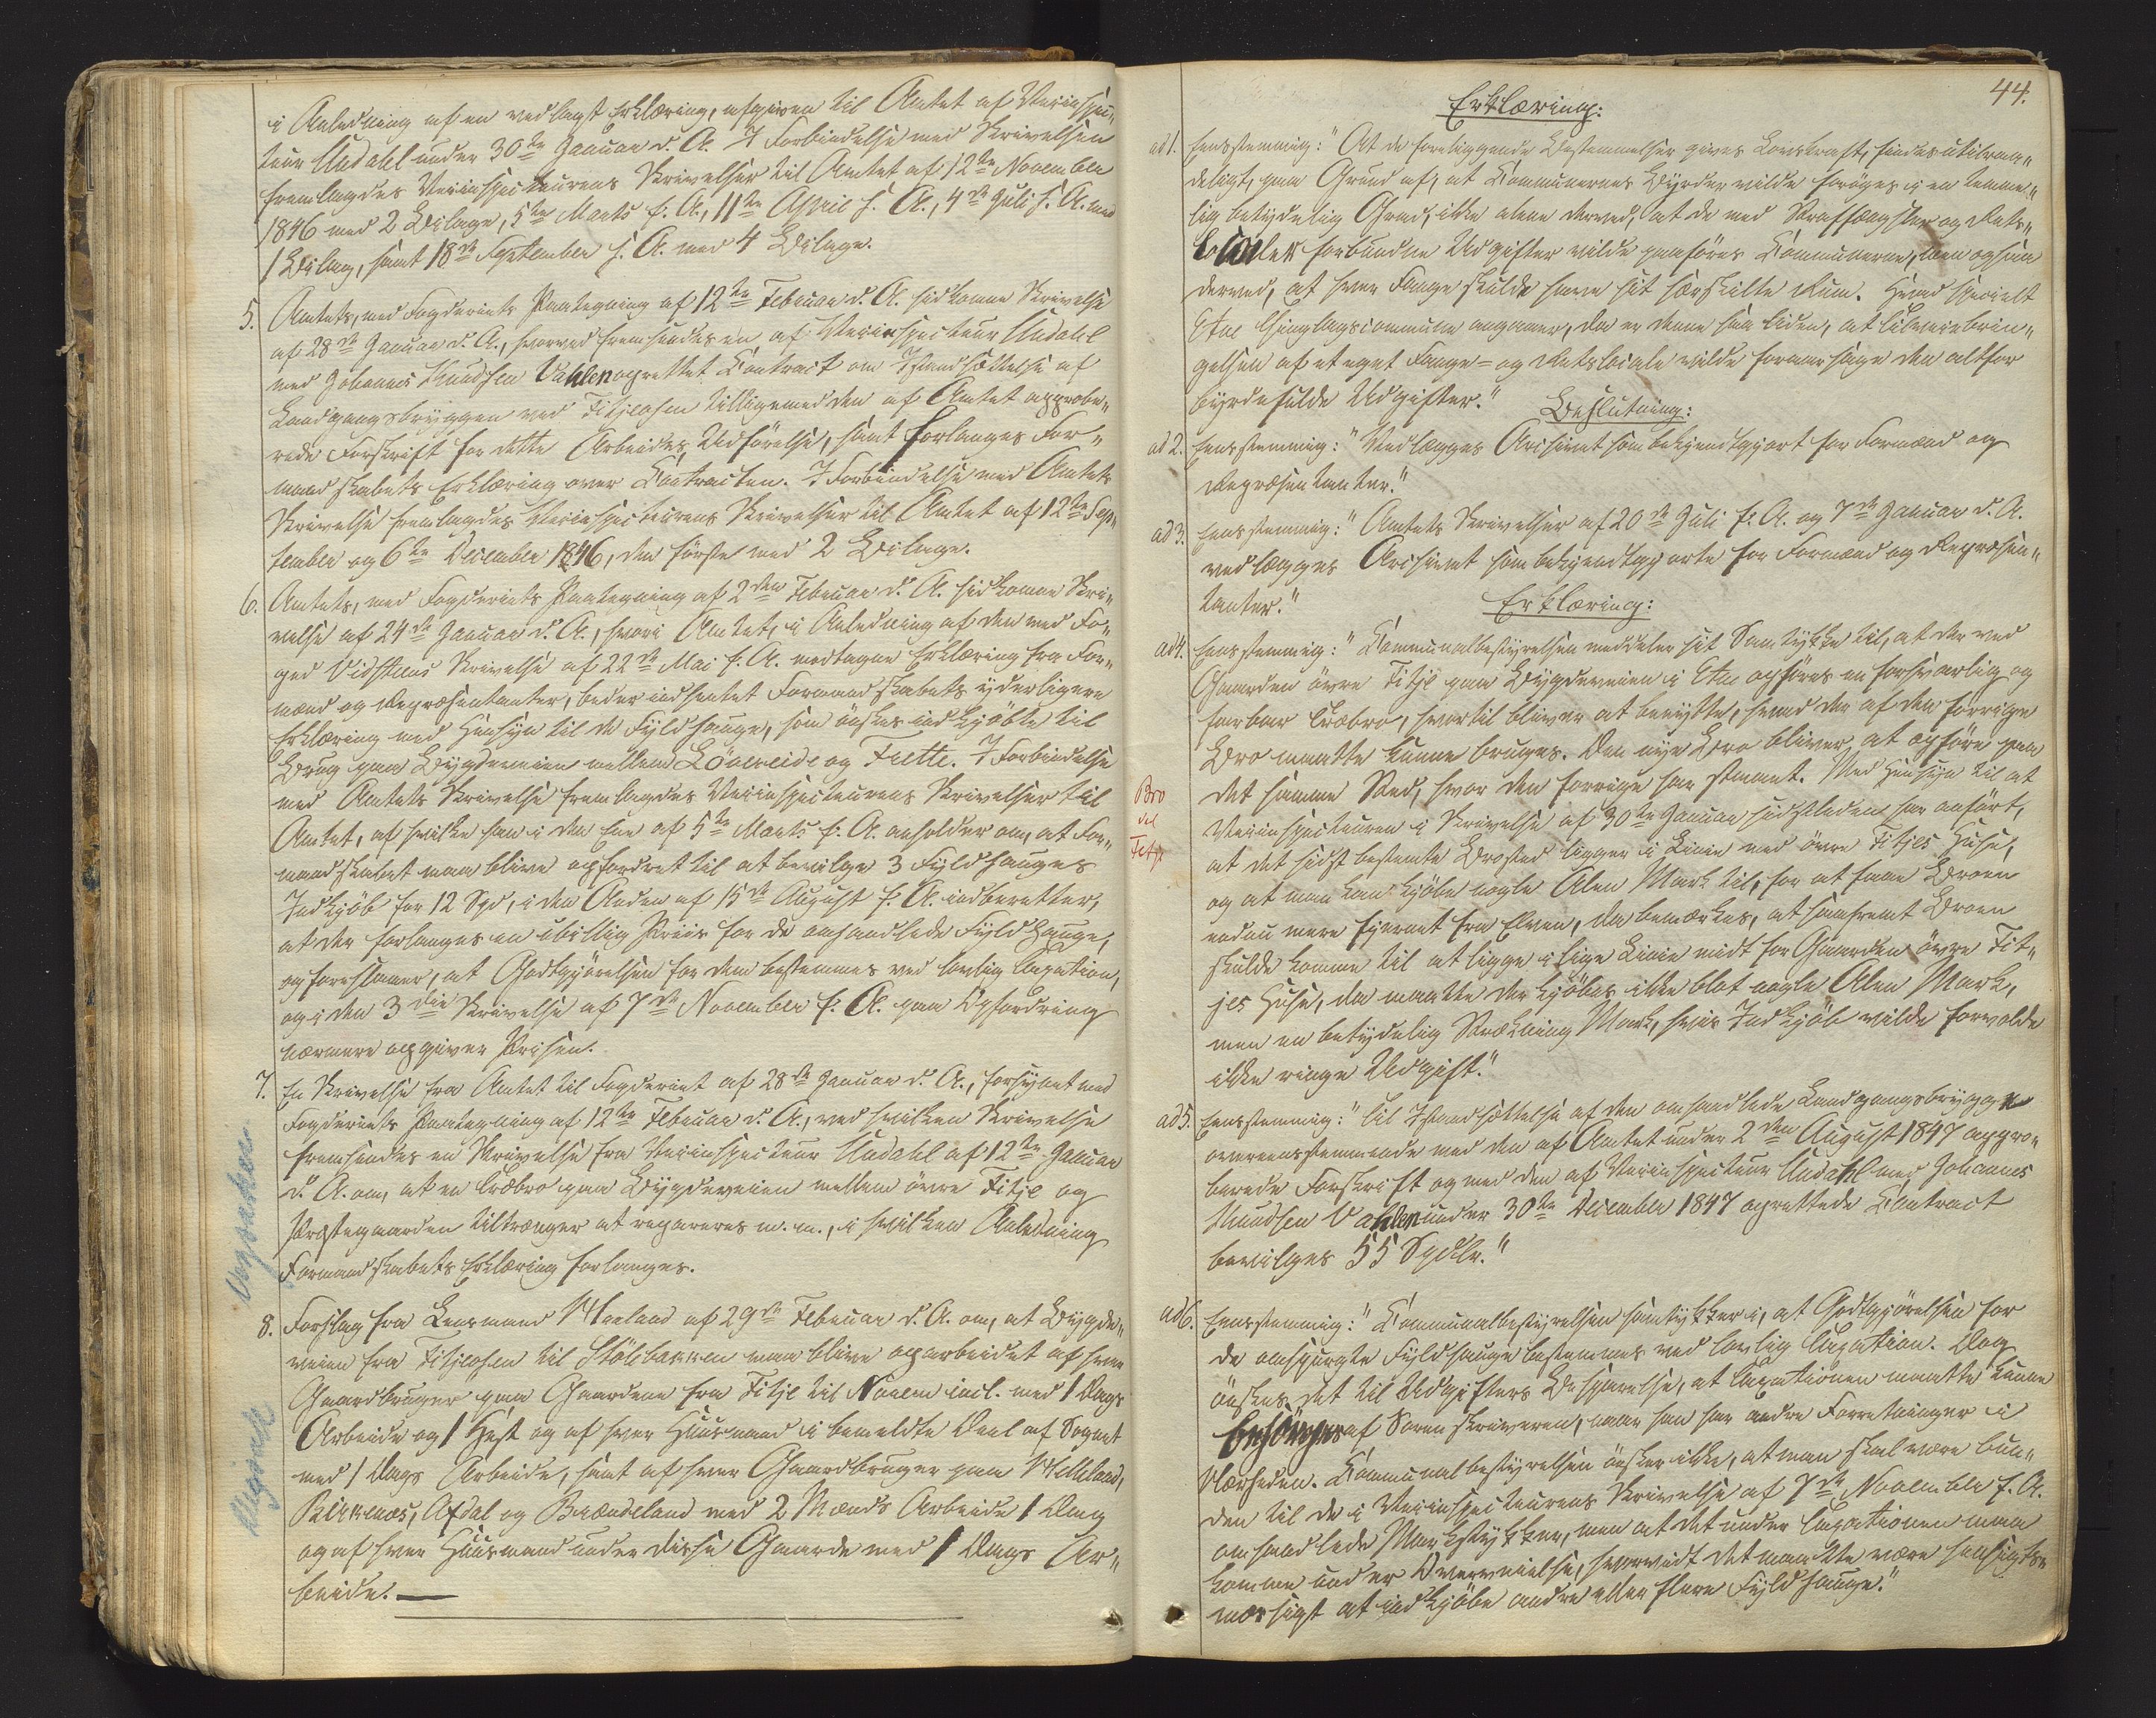 i Anledning af en vedlagt Erklæring, afgiven til Amtet af Veiinspec„
teur Undahl under 30te Januar d. A. I Forbindelse med Skrivelsen
fremlagdes Veiinspecteurens Skrivelser til Amtet af 12te November
1846 med 2 Bilage, 5te Marts f. A., 11te April f. A., 4de Juli f. A. med
1 Bilag, samt 18de September f. A. med 4 Bilage.
5. Amtets, med Fogderiets Paategning af 12te Februar d. A. hidkomne Skrivelse
af 28de Januar d. A., hvorved fremsendes en af Veiinspecteur Undahl
med Johannes Knudsen Vahlen oprettet Contract om Istandsættelse af
Landgangsbryggen ved Fitjeosen tilligemed den af Amtet approbe„
rede Forskrift for dette Arbeides Udførelse, samt forlanges For„
mandskabets Erklæring over Contracten. I Forbindelse med Amtets
Skrivelse fremlagdes Veiinspecteurens Skrivelser til Amtet af 12te Sep„
tember og 6te December 1846, den første med 2 Bilage.
6. Amtets, med Fogderiets Paategning af 2den Februar d. A. hidkomne Skri„
velse af 24de Januar d. A., hvori Amtet, i Anledning af den med Fo„
ged Vidsteens Skrivelse af 22de Mai f. A. modtagne Erklæring fra For„
mænd og Repræsentanter, beder indhentet Formandskabets yderligere
Erklæring med Hensyn til de Fyldhauge, som ønskes indkjøbte til
Brug paa Bygdeveien mellem Løvereide og Frette. I Forbindelse
med Amtets Skrivelse fremlagdes Veiinspecteurens Skrivelser til
Amtet, af hvilke han i den Ene af 5te Marts f. A. anholder om, at For„
mandskabet maa blive opfordret til at bevilge 3 Fyldhauges
Indkjøb for 12 Spd, i den Anden af 15de August f. A. indberetter,
at der forlanges en ubillig Priis for de omhandlede Fyldhauge,
og foreslaaer, at Godtgjørelsen for dem bestemmes ved lovlig Taxation,
og i den 3die Skrivelse af 7de November f. A. paa Opfordring
nærmere opgiver Prisen.
7. En Skrivelse fra Amtet til Fogderiet af 28de Januar d. A., forsynet med
Fogderiets Paategning af 12te Februar d. A., ved hvilken Skrivelse
fremsendes en Skrivelse fra Veiinspecteur Undahl af 12te Januar
d. A. om, at en Træbro paa Bygdeveien mellem øvre Fitje og
Prestegaarden tiltrænger at repareres m. m., i hvilken Anledning
Formandskabets Erklæring forlanges.
8. Forslag fra Lensmand Meeland af 29de Februar d. A. om, at Bygde„
veien fra Fitjeosen til Stölsbakken maa blive oparbeidet af hver
Gaardbruger paa Gaardene fra Fitje til Noven incl. med 1 Dags
Arbeide og 1 Hest og af hver Huusmand i bemeldte Deel af Sognet
med 1 Dags Arbeide, samt af hver Gaardbruger paa Melleland,
Birkenæs, Afdal og Brændeland med 2 Mands Arbeide 1 Dag
og af hver Huusmand under disse Gaarde med 1 Dags Ar„
beide. —
44.
Erklæring:
ad 1. Eenstemmig: "At de foreliggende Bestemmelser gives Lovskraft, findes utilraa„
deligt, paa Grund af, at Communernes Byrder vilde forøges i en temme„
lig betydelig Grad, ikke alene derved, at de med Straffængsler og Rets„
localer forbundne Udgifter vilde paaføres Communerne, men ogsaa
derved, at hver Fange skulde have sit særskilte Rum. Hvad specielt
Etne Thinglagscommune angaaer, da er denne saa liden, at tilveiebrin„
gelsen af et eget Fange- og Retslocale vilde foraarsage den altfor
byrdefulde Udgifter."
Beslutning:
ad 2. Eenstemmig: "Vedlægges Archivet som bekjendtgjort for Formænd og
Repræsentanter."
ad 3. Eenstemmig: "Amtets Skrivelser af 20de Juli f. A. og 7de Januar d. A.
vedlægges Archivet som bekjendtgjorte for Formænd og Repræsen„
tanter."
Erklæring:
ad 4. Eenstemmig: "Communalbestyrelsen meddeler sit Samtykke til, at der ved
Gaarden øvre Fitje paa Bygdeveien i Etne opføres en forsvarlig og
farbar Træbro, hvortil bliver at benytte, hvad der af den forrige
Bro maatte kunne bruges. Den nye Bro bliver at opføre paa
det samme Sted, hvor den forrige har staaet. Med Hensyn til at
Bro
ved
Fitje
Veiinspecteuren i Skrivelse af 30te Januar sidstleden har anført,
at det sidst bestemte Brosted ligger i Linie med øvre Fitjes Huse,
og at man kan kjøbe nogle Alen Mark til, for at faae Broen
endnu mere fjernet fra Elven, da bemærkes, at saafremt Broen
skulde komme til at ligge i lige Linie midt for Gaarden øvre Fit„
jes Huse, da maatte der kjøbes ikke blot nogle Alen Mark,
men en betydelig Strækning Mark, hvis Indkjøb vilde forvolde
ikke ringe Udgift."
ad 5. Eenstemmig: "Til Istandsættelse af den omhandlede Landgangsbrygge
overeensstemmende med den af Amtet under 2den August 1847 appro„
berede Forskrift og med den af Veiinspecteur Undahl med Johannes
Knudsen Vahlen under 30te December 1847 oprettede Contract
bevilges 55 Spdlr."
ad 6. Eenstemmig: "Communalbestyrelsen samtykker i, at Godtgjørelsen for
de omspurgte Fyldhauge bestemmes ved lovlig Taxation. Dog
ønskes det til Udgifters Besparelse, at Taxationen maatte kunne
besörges af Sorenskriveren, naar han har andre Forretninger i
Nærheden. Communalbestyrelsen ønsker ikke, at man skal være bun„
den til de i Veiinspecteurens Skrivelse af 7de November f. A.
omhandlede Markstykker, men at det under Taxationen maa
komme under Overveielse, hvorvidt det maatte være hensigts„
mæssigt at indkjøbe andre eller flere Fyldhauge."